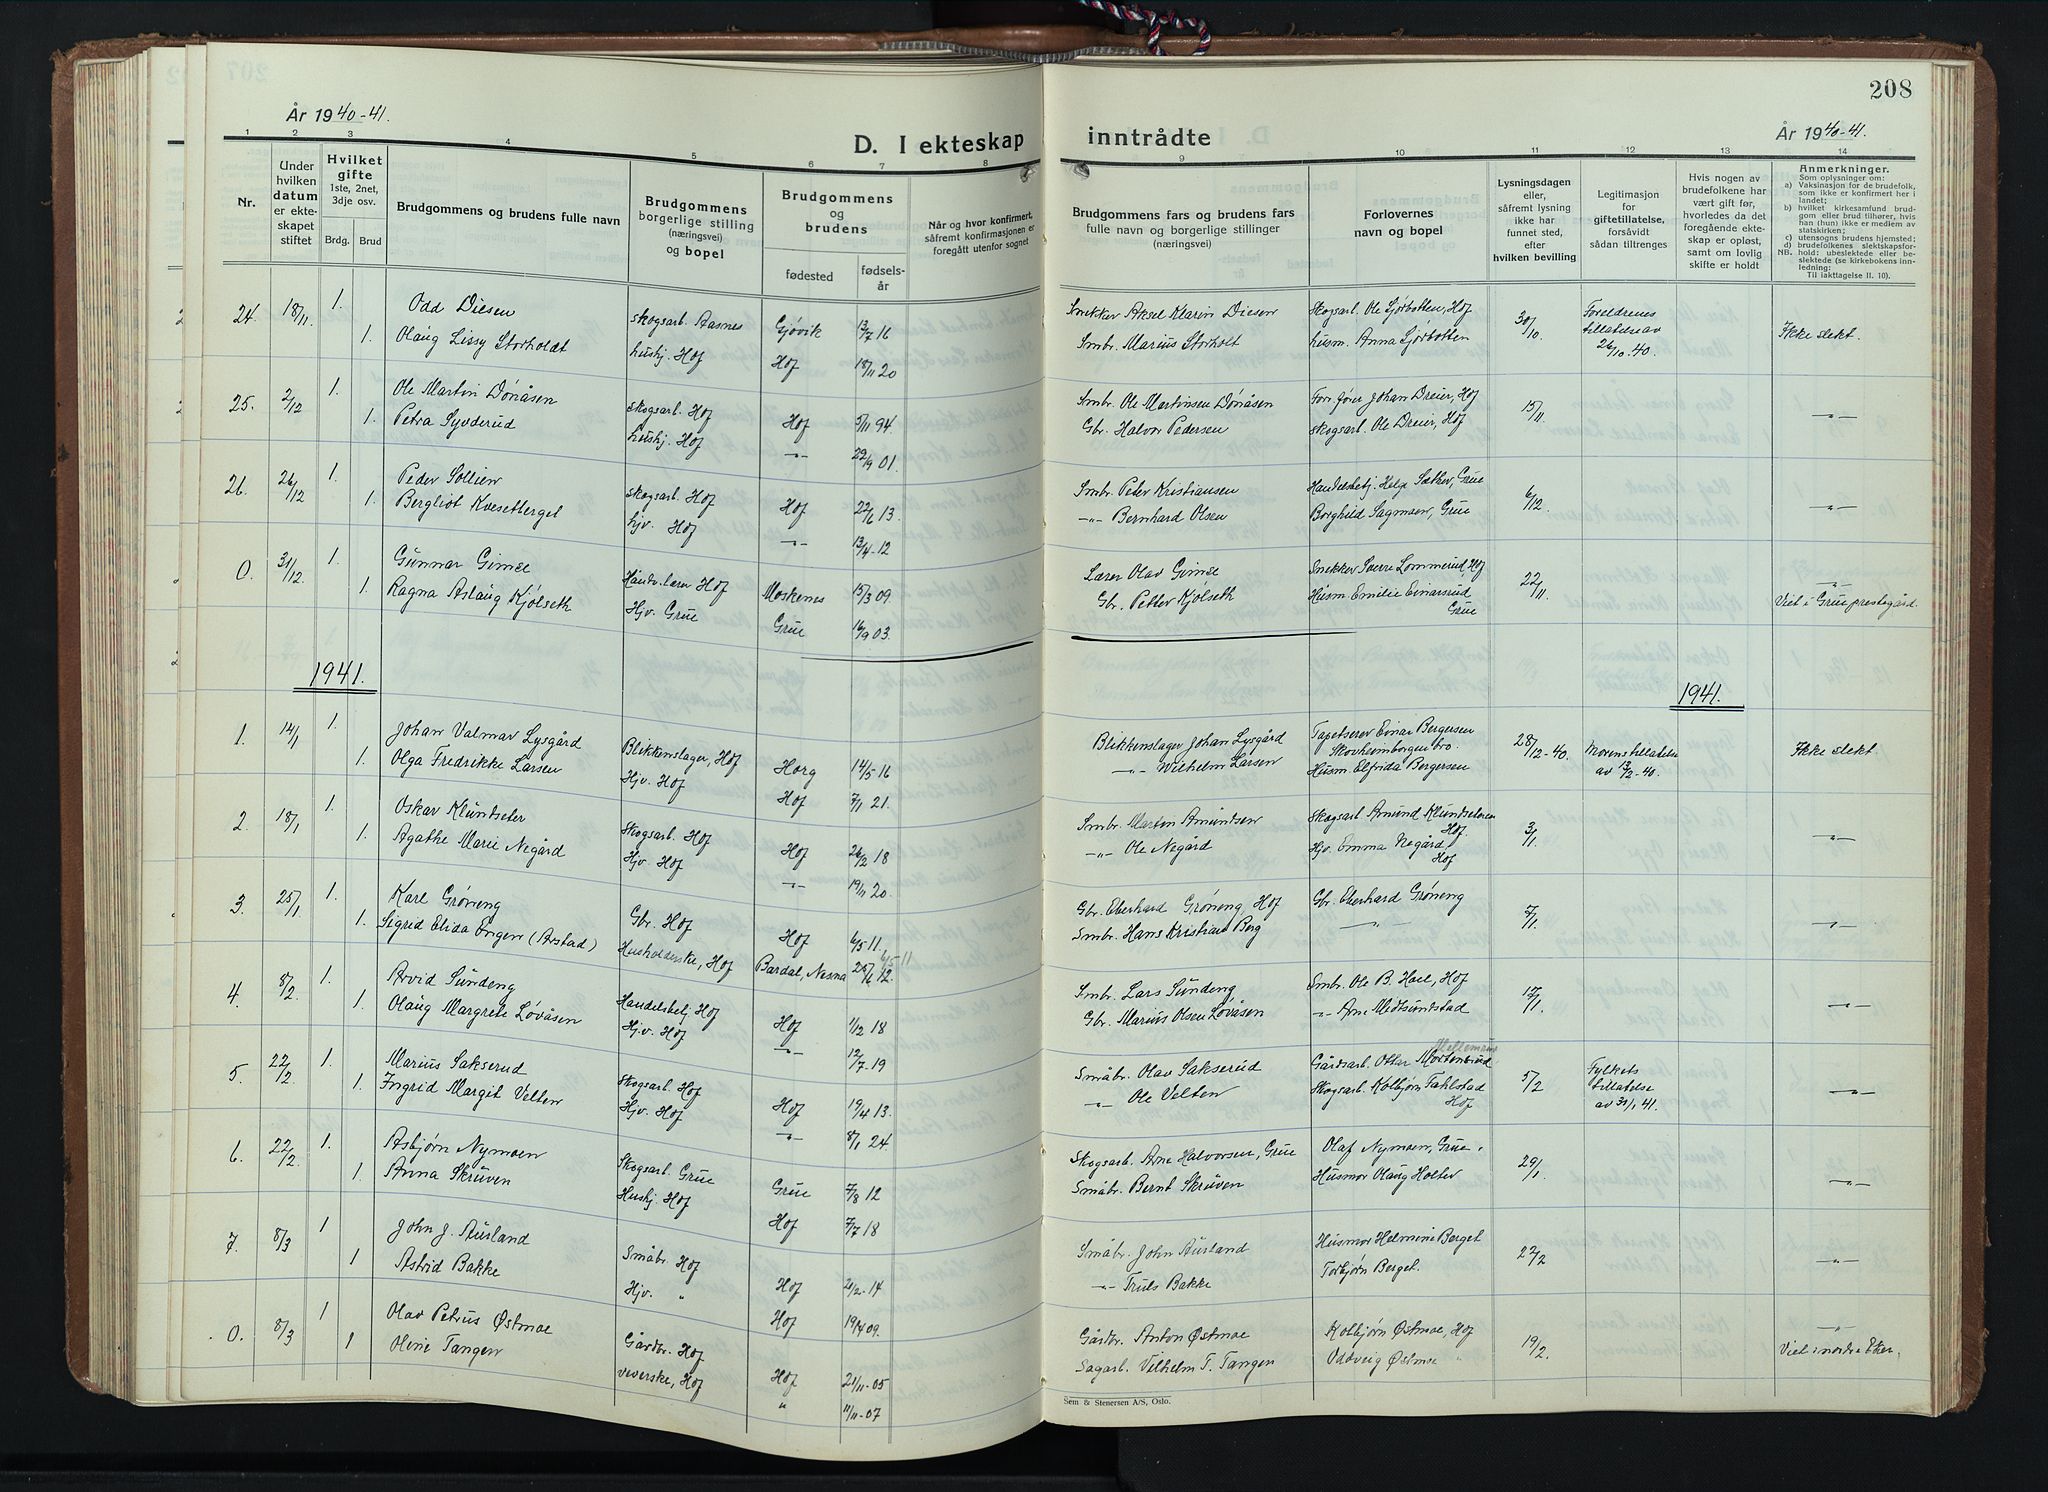 År 1940-41.
D. I ekteskap
1 2 3 4 5 6 7 8
Nr.
Under hvilken datum er ekteskapet stiftet
Hvilket gifte 1ste, 2net, 3dje osv.
Brdg. Brud
Brudgommens og brudens fulle navn
Brudgommens borgerlige stilling (næringsvei) og bopel
Brudgommens og brudens
fødested fødselsår
Når og hvor konfirmert, såfremt konfirmasjonen er foregått utenfor sognet
24. 18/11 1. Odd Diesen skogsarb. Aasnes Gjøvik 13/7 16
1. Olaug Lissy Storholdt hushj. Hof Hof 18/11 20
25. 2/12 1. Ole Martin Dønåsen skogsarb. Hof Hof 5/11 94.
1. Petra Syverud hushj. Hof -"- 22/9 01.
26. 26/12 1. Peder Sollien skogsarb. Hof Hof 22/6 13.
1. Bergliot Kvesetberget hjv. Hof -"- 13/4-12
0. 31/12 1. Gunnar Gimse Håndv. lærer Hof Moskenes 15/3 09.
1. Ragna Aslaug Kjølseth Hjv. Grue Grue 16/9 03.
1941.
1. 14/1 1. Johan Valmar Lysgård Blikkenslager, Hof Horg 14/5 16
1. Olga Fredrikke Larsen Hjv. Hof Hof 7/1 21.
2. 18/1 1. Oskar Klundseter Skogsarb. Hof Hof 26/2 18
1. Agathe Marie Negård Hjv. Hof -"- 19/11 20.
3. 25/1 1. Karl Grøneng Gbr. Hof Hof 6/5 11.
1. Sigrid Elida Engen (Arstad) Husholderske, Hof Bardal, Nesna 25/6 12.
4. 8/2 1. Arvid Sundeng Handelsbetj. Hof Hof 1/2 18
1. Olaug Margrete Løvåsen Hjv. Hof -"- 12/7-19
5. 22/2 1. Marius Sakserud Skogsarb. Hof Hof 19/4 13.
1. Ingrid Margit Velten Hjv. Hof -"- 8/1 24.
6. 22/2 1. Asbjørn Nymoen Skogsarb. Grue Grue 7/8 12
1. Anna Skruven Hushj. Hof Hof 7/7 18
7. 8/3 1 John J. Ausland Småbr. Hof Hof 21/2-14
1 Astrid Bakke Hjv. " Hof 19/4 09.
0. 8/3 1 Olav Petrus Østmoe Gårdbr. Hof Hof 21/11-05
1 Oline Tangen veverske, Hof " 11/11-07
208
inntrådte
År 1940-41.
9 10 11 12 13 14
Brudgommens fars og brudens fars fulle navn og borgerlige stillinger (næringsvei)
Forlovernes navn og bopel
Lysningsdagen eller, såfremt lysning ikke har funnet sted, efter hvilken bevilling
Legitimasjon for giftetillatelse, forsåvidt sådan tiltrenges
Hvis nogen av brudefolkene har vært gift før, hvorledes da det foregående ekteskap er opløst, samt om lovlig skifte er holdt
Anmerkninger.
Som oplysninger om:
a) Vaksinasjon for de brudefolk, som ikke er konfirmert her i landet;
b) hvilket kirkesamfund brudgom eller brud tilhører, hvis han (hun) ikke er medlem av statskirken;
c) utensogns brudens hjemsted;
d) brudefolkenes slektskapsforhold: ubeslektede eller beslektede (se kirkebokens innledning:
NB. Til iakttagelse II. 10).
Snekker Aksel Klarin Diesen Skogsarb. Ole Sjørbotten, Hof 30/10 Foreldrenes tillatelse av 26/10.40. Ikke slekt.
Smbr. Marius Storholt husm. Anna Sjørbotten
Smbr. Ole Martinsen Dønåsen Forr.fører Johan Dreier, Hof 15/11 -"-
Gbr. Halvor Pedersen skogsarb. Ole Dreier, Hof
Smbr. Peter Kristiansen Handelsbetj. Helge Sæther, Grue 6/12. -"-
-"- Bernhard Olsen Borghild Sagmoen, Grue
Lærer Olav Gimse Snekker Sverre Lommerud, Hof 22/11. -"-
Gbr. Petter Kjølseth Husm. Emilie Einarsrud Grue Viet i Grue prestegård.
1941.
Blikkenslager Johan Lysgård Tapetserer Einar Bergersen Skovheimborgen bro. 28/12-40. Morens tillatelse av 13/2-40. Ikke slekt
-"- Wilhelm Larsen Husm. Elfrida Bergersen
Smbr. Martin Amundsen Skogsarb. Amund Klundseteren Hof. 3/1. -"-
-"- Ole Negård Hjv. Emma Negård Hof
Gbr. Eberhard Grøneng, Hof Gbr. Eberhard Grøneng 7/1. -"-
Smbr. Hans Kristian Berg -"-
Smbr. Lars Sundeng Smbr. Ole B. Hoel, Hof 17/1. -"-
Gbr. Marius Olsen Løvåsen -"- Arne Medsundstad
Småbr. Olav Sakserud Gårdsarb. Ottar Mortensrud 5/2 Fylkets tillatelse av 31/1 41. -"-
-"- Ole Velten Skogsarb. Kolbjørn Tahlstad Hof
Skogsarb. Arne Halvorsen, Grue Olaf Nymoen, Grue. 29/1. -"-
Småbr. Bernt Skruven Husmor Olaug Holter
Småbr. John Ausland Husmor Helmine Berget 22/2 -"-
-"- Truls Bakke Torbjørn Berget.
Gårdbr. Anton Østmoe Kolbjørn Østmoe, Hof 19/2. -"-
Sagarb. Vilhelm T. Tangen Oddveig Østmoe " Viet i nordre Eker.
Sem & Stenersen A/S, Oslo.